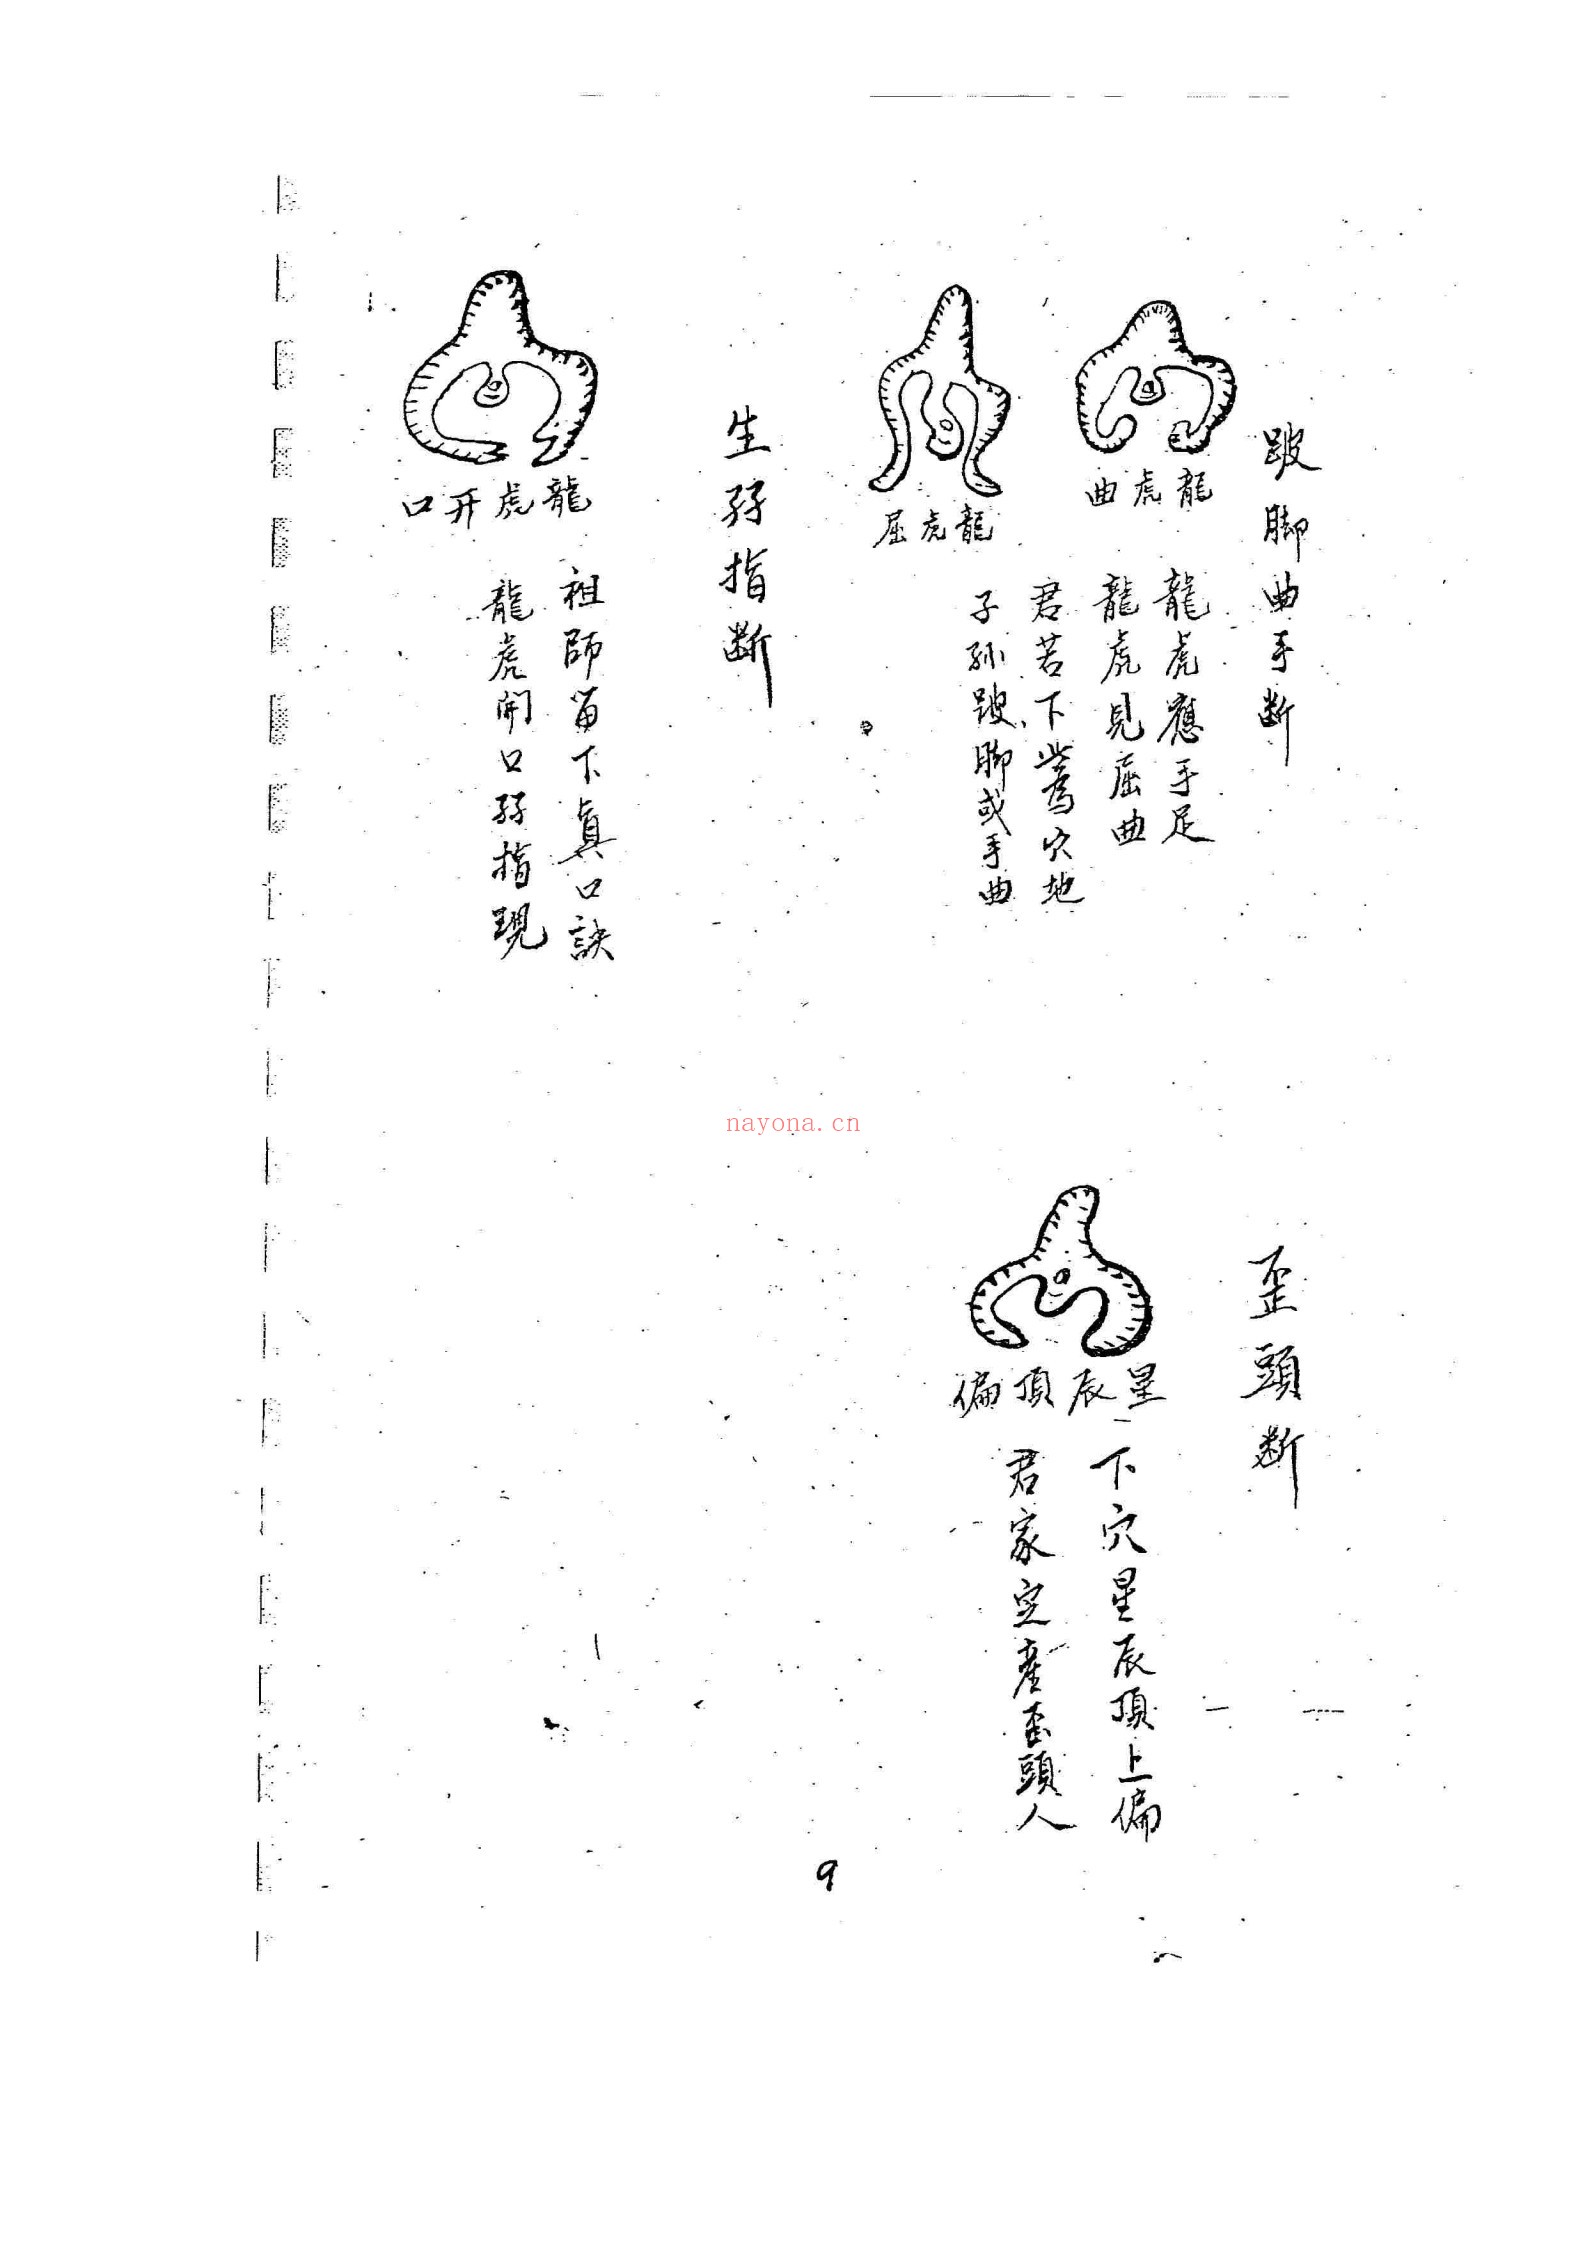 跛脚曲手断
龍虎曲
龍虎屈
龍虎應手足
龍虎見屈曲
君若下此為穴地
子孙跛脚或手曲
生孖指断
龍虎开口
祖師留下真口訣
龍虎開口孖指現
nayona.cn
歪頭断
星辰頂偏
下穴星辰頂上偏
君家定產歪頭人
9